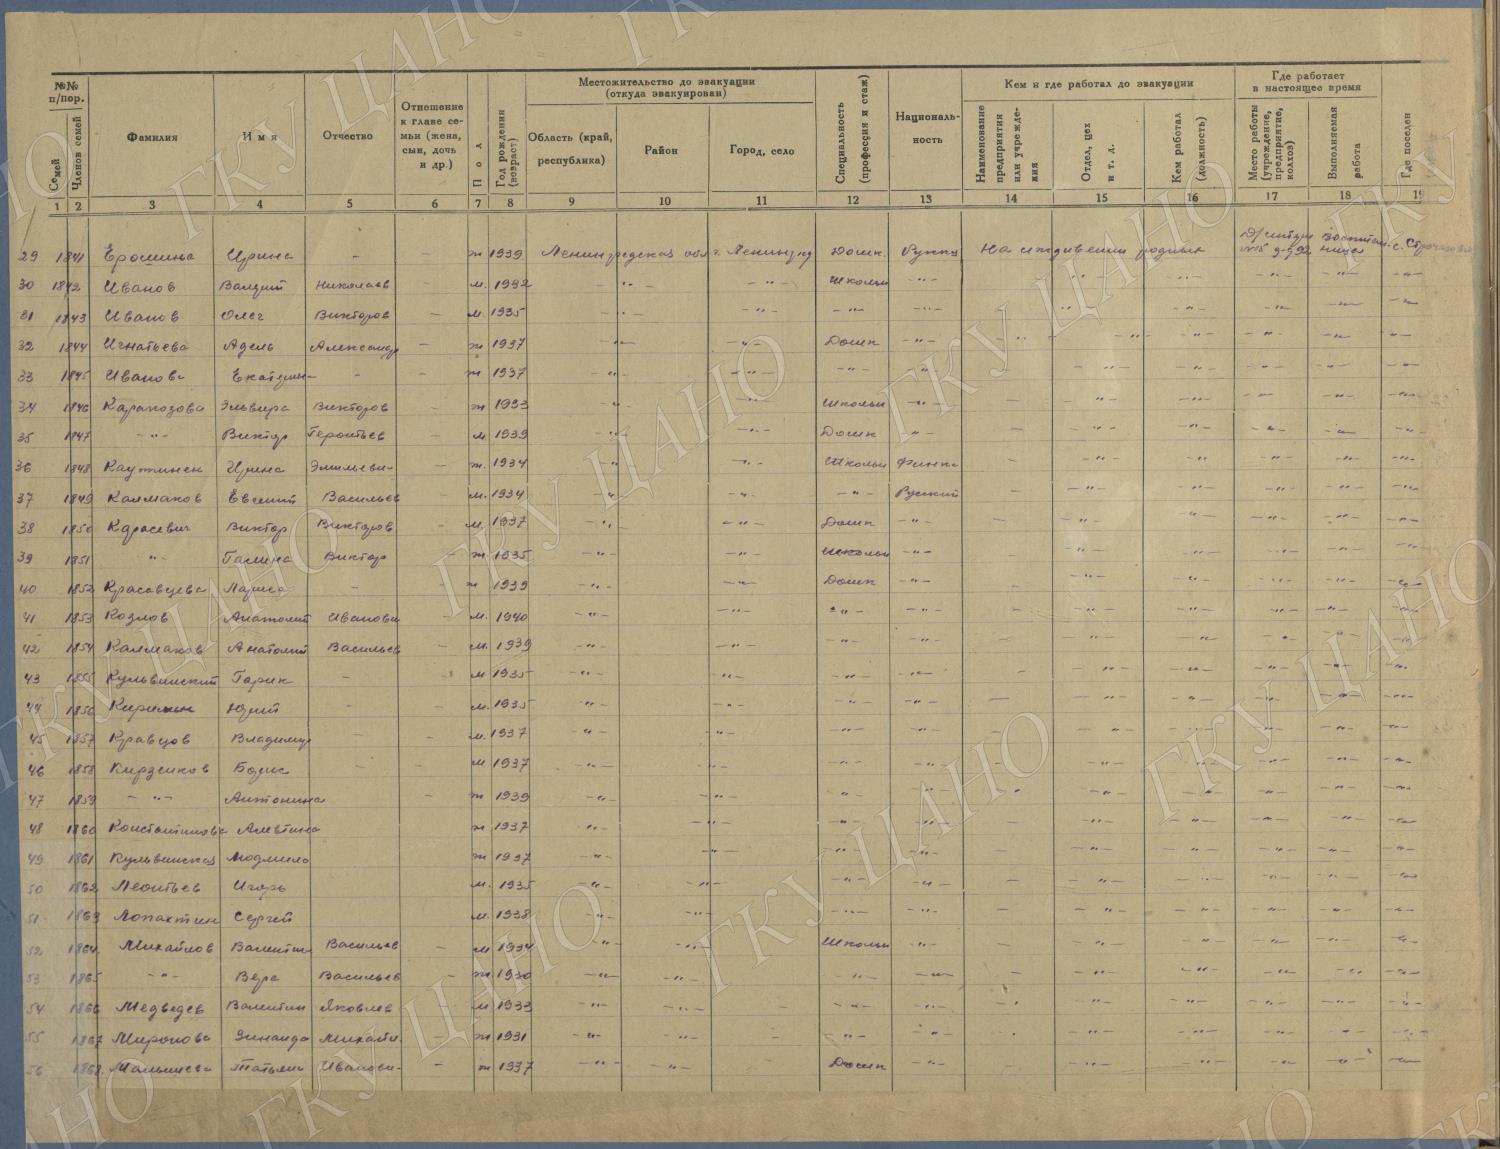 №№ п/пор.
Семей
Членов семей
Фамилия
Имя
Отчество
Отношение к главе семьи (жена, сын, дочь и др.)
Пол
Год рождения (возраст)
Местожительство до эвакуации (откуда эвакуирован)
Область (край, республика)
Район
Город, село
Специальность (профессия и стаж)
Национальность
Кем и где работал до эвакуации
Наименование предприятия или учреждения
Отдел, цех и т. д.
Кем работал (должность)
Где работает в настоящее время
Место работы (учреждение, предприятие, колхоз)
Выполняемая работа
Где поселен
1 2 3 4 5 6 7 8 9 10 11 12 13 14 15 16 17 18 19
29 1841 Ерошина Ирина - - ж 1939 Ленинградская обл г. Ленинград Дошк. На иждивении родных
30 1842 Иванов Валерий Николаев - м. 1932 -"- -"- Школьн -"-
31 1843 Иванов Олег Викторов - м. 1935 -"- -"- -"- -"-
32 1844 Игнатьева Адель Александр - ж 1937 -"- -"- Дошк -"-
33 1845 Иванова Екатерина - - ж 1937 -"- -"- -"- -"-
34 1846 Каракозова Эльвира Викторов - ж 1933 -"- -"- Школьн -"-
35 1847 -"- Виктор Героитьев - м 1939 -"- -"- Дошк -"-
36 1848 Каутинен Ирина Эмильеви- - ж. 1934 -"- -"- Школьн Финка
37 1849 Калмаков Евгений Васильев - м. 1934 -"- -"- -"- Руский
38 1850 Карасевич Виктор Викторов - м. 1937 -"- -"- Дошк -"-
39 1851 -"- Галина Виктор - ж 1935 -"- -"- Школьн -"-
40 1852 Красавцева Лариса - - ж 1939 -"- -"- Дошк -"-
41 1853 Козлов Анатолий Иванови - м. 1940 -"- -"- -"- -"-
42 1854 Калмаков Анатолий Васильев - м. 1939 -"- -"- -"- -"-
43 1855 Кульвинский Гарик - - м 1935 -"- -"- -"- -"-
44 1856 Юрий - - м. 1935 -"- -"- -"- -"-
45 1857 Кравцов Владимир - - м. 1937 -"- -"- -"- -"-
46 1858 Кирзенков Борис - - м 1937 -"- -"- -"- -"-
47 1859 -"- Антонина - ж 1939 -"- -"- -"- -"-
48 1860 Константинова Алевтина ж 1937 -"- -"- -"- -"-
49 1861 Кульвинская Людмила ж 1937 -"- -"- -"- -"-
50 1862 Леонтьев Игорь м. 1935 -"- -"- -"- -"-
51 1863 Лопахтин Сергей м. 1938 -"- -"- -"- -"-
52 1864 Михайлов Валентин Васильев - м 1934 -"- -"- Школьн -"-
53 1865 -"- Вера Васильев - ж 1930 -"- -"- -"- -"-
54 1866 Медведев Валентин Яковлев - м 1933 -"- -"- -"- -"-
55 1867 Миронова Зинаида Михайл. - ж 1931 -"- - -"- -"-
56 1868 Малышева Татьяна Иванови- - ж 1937 -"- -"- Дошк -"-
ГКУ ЦАНО